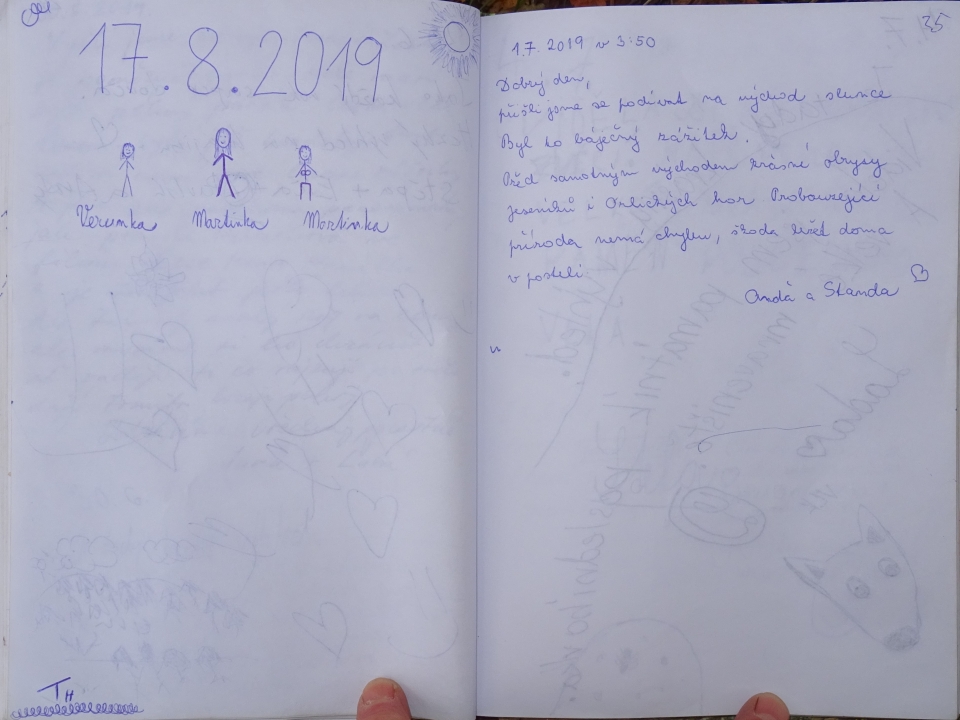 17.8.2019
Verunka Martinka Martinka
TH
35
1.7. 2019 v 3:50
Dobrý den,
přišli jsme se podívat na východ slunce
Byl to báječný zážitek.
Před samotným východem krásné obrysy
Jeseníků i Orlických hor Probouzející
příroda nemá chybu, škoda ležet doma
v posteli.
Anda a Standa